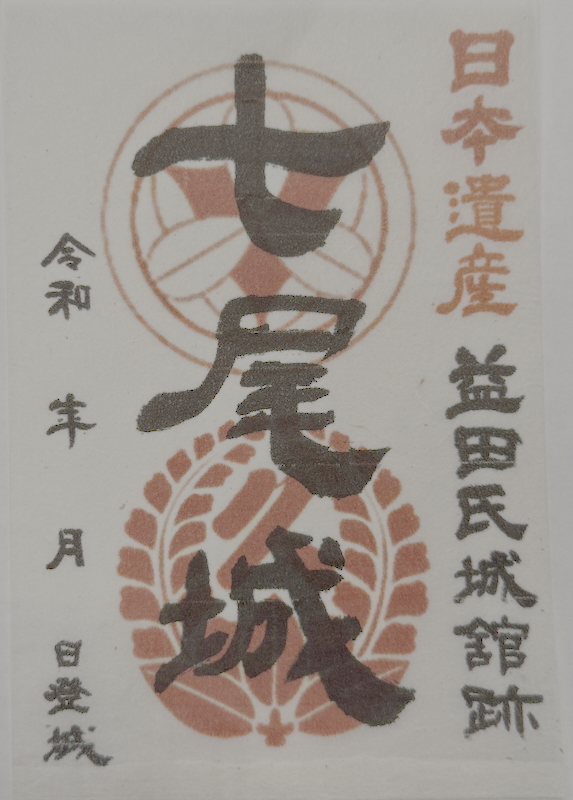 日本遺産 益田氏城館跡
七尾城
令和 年 月 日登城